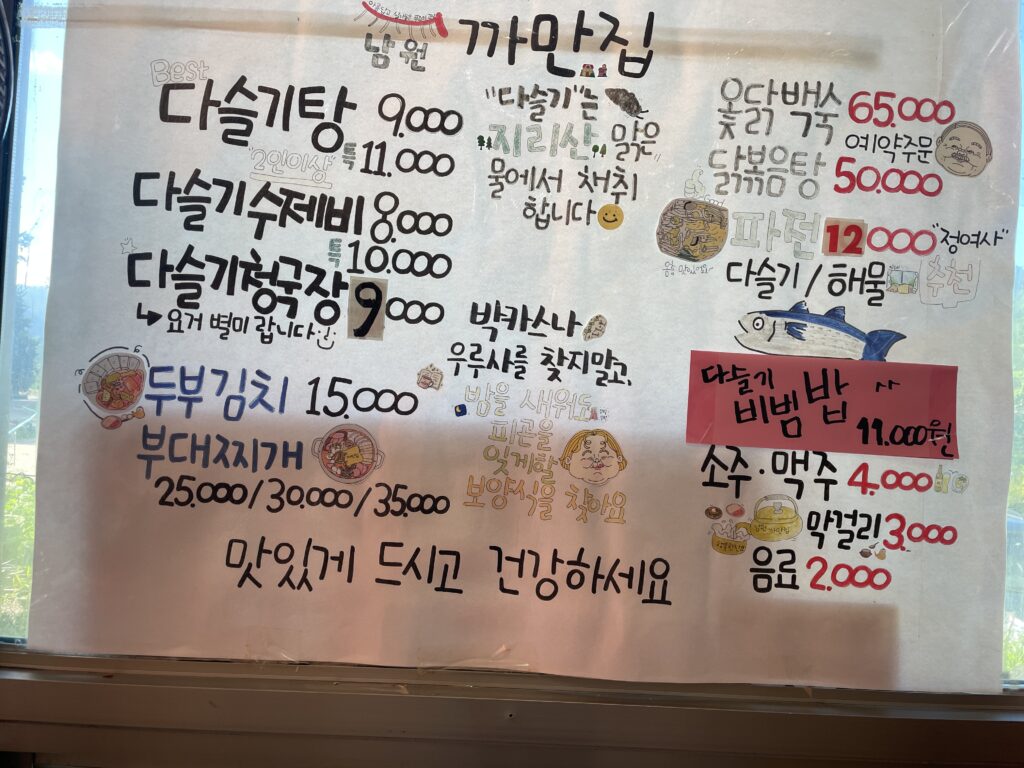 남원 까만집
Best
다슬기탕 9.000
특 11.000
"2인이상"
다슬기 수제비 8.000
특 10.000
다슬기청국장 9000
요거 별미랍니다
두부김치 15.000
부대찌개
25.000/30.000/35.000
"다슬기"는
지리산 맑은
물에서 채취
합니다
박카스나
우루사를 찾지말고,
밤을 새워도
피곤을
잊게할
보양식을 찾아요
옻닭 백숙 65.000
예약주문
닭볶음탕 50.000
파전 12000 "정여사"
추천
다슬기/해물
다슬기
비빔밥
11.000원
소주·맥주 4.000
막걸리 3.000
음료 2.000
맛있게 드시고 건강하세요